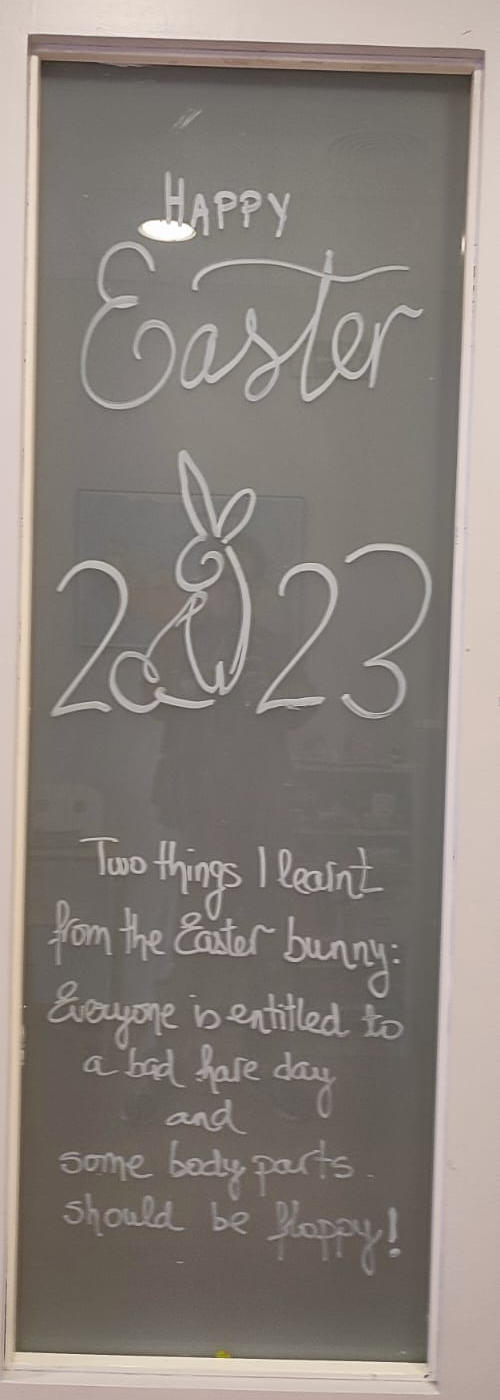 HAPPY
Easter
2023
Two things I learnt
from the Easter bunny:
Everyone is entitled to
a bad hare day
and
some body parts
should be floppy!